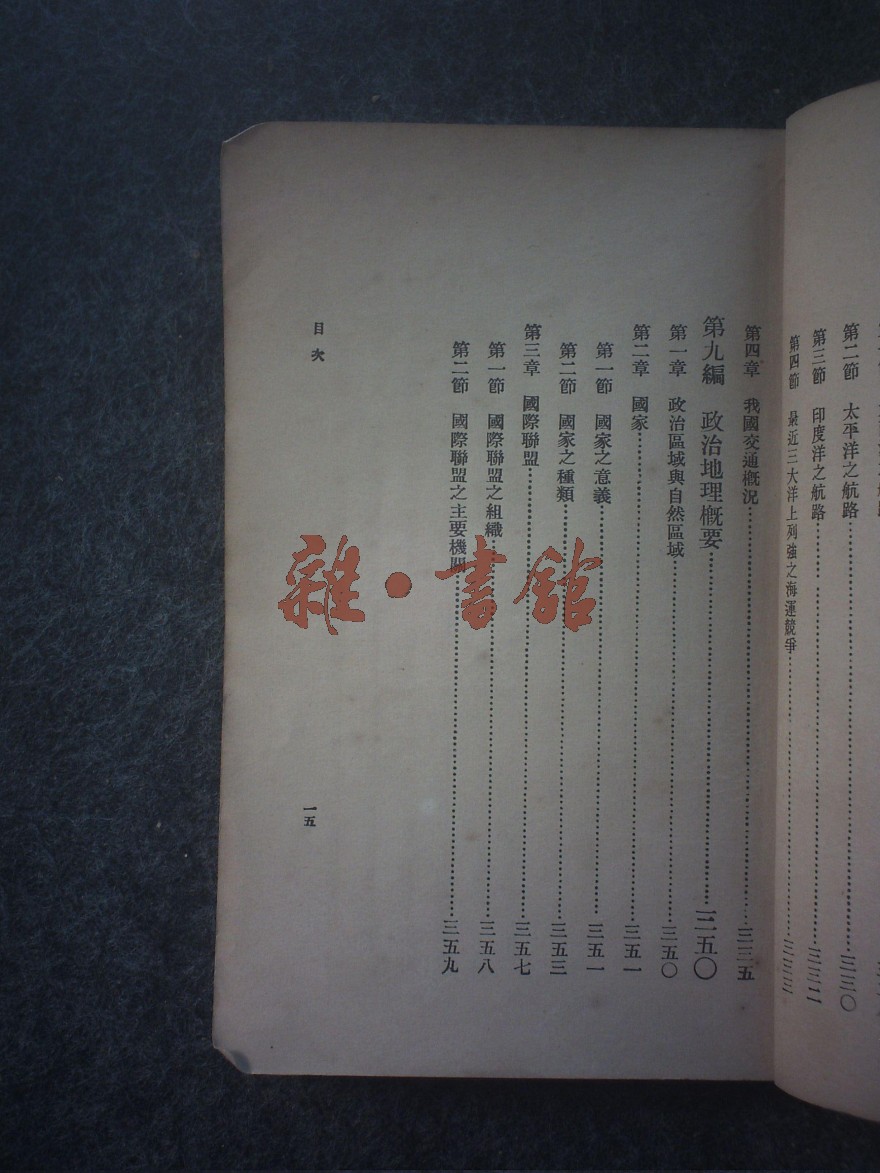 第二節 太平洋之航路……三三〇
第三節 印度洋之航路……三三二
第四節 最近三大洋上列強之海運競爭……三三三
第四章 我國交通概況……三三五
第九編 政治地理概要……三五〇
第一章 政治區域與自然區域……三五〇
第二章 國家……三五一
第一節 國家之意義……三五一
第二節 國家之種類……三五三
第三章 國際聯盟……三五七
第一節 國際聯盟之組織……三五八
第二節 國際聯盟之主要機……三五九
目次
一五
雜·書館